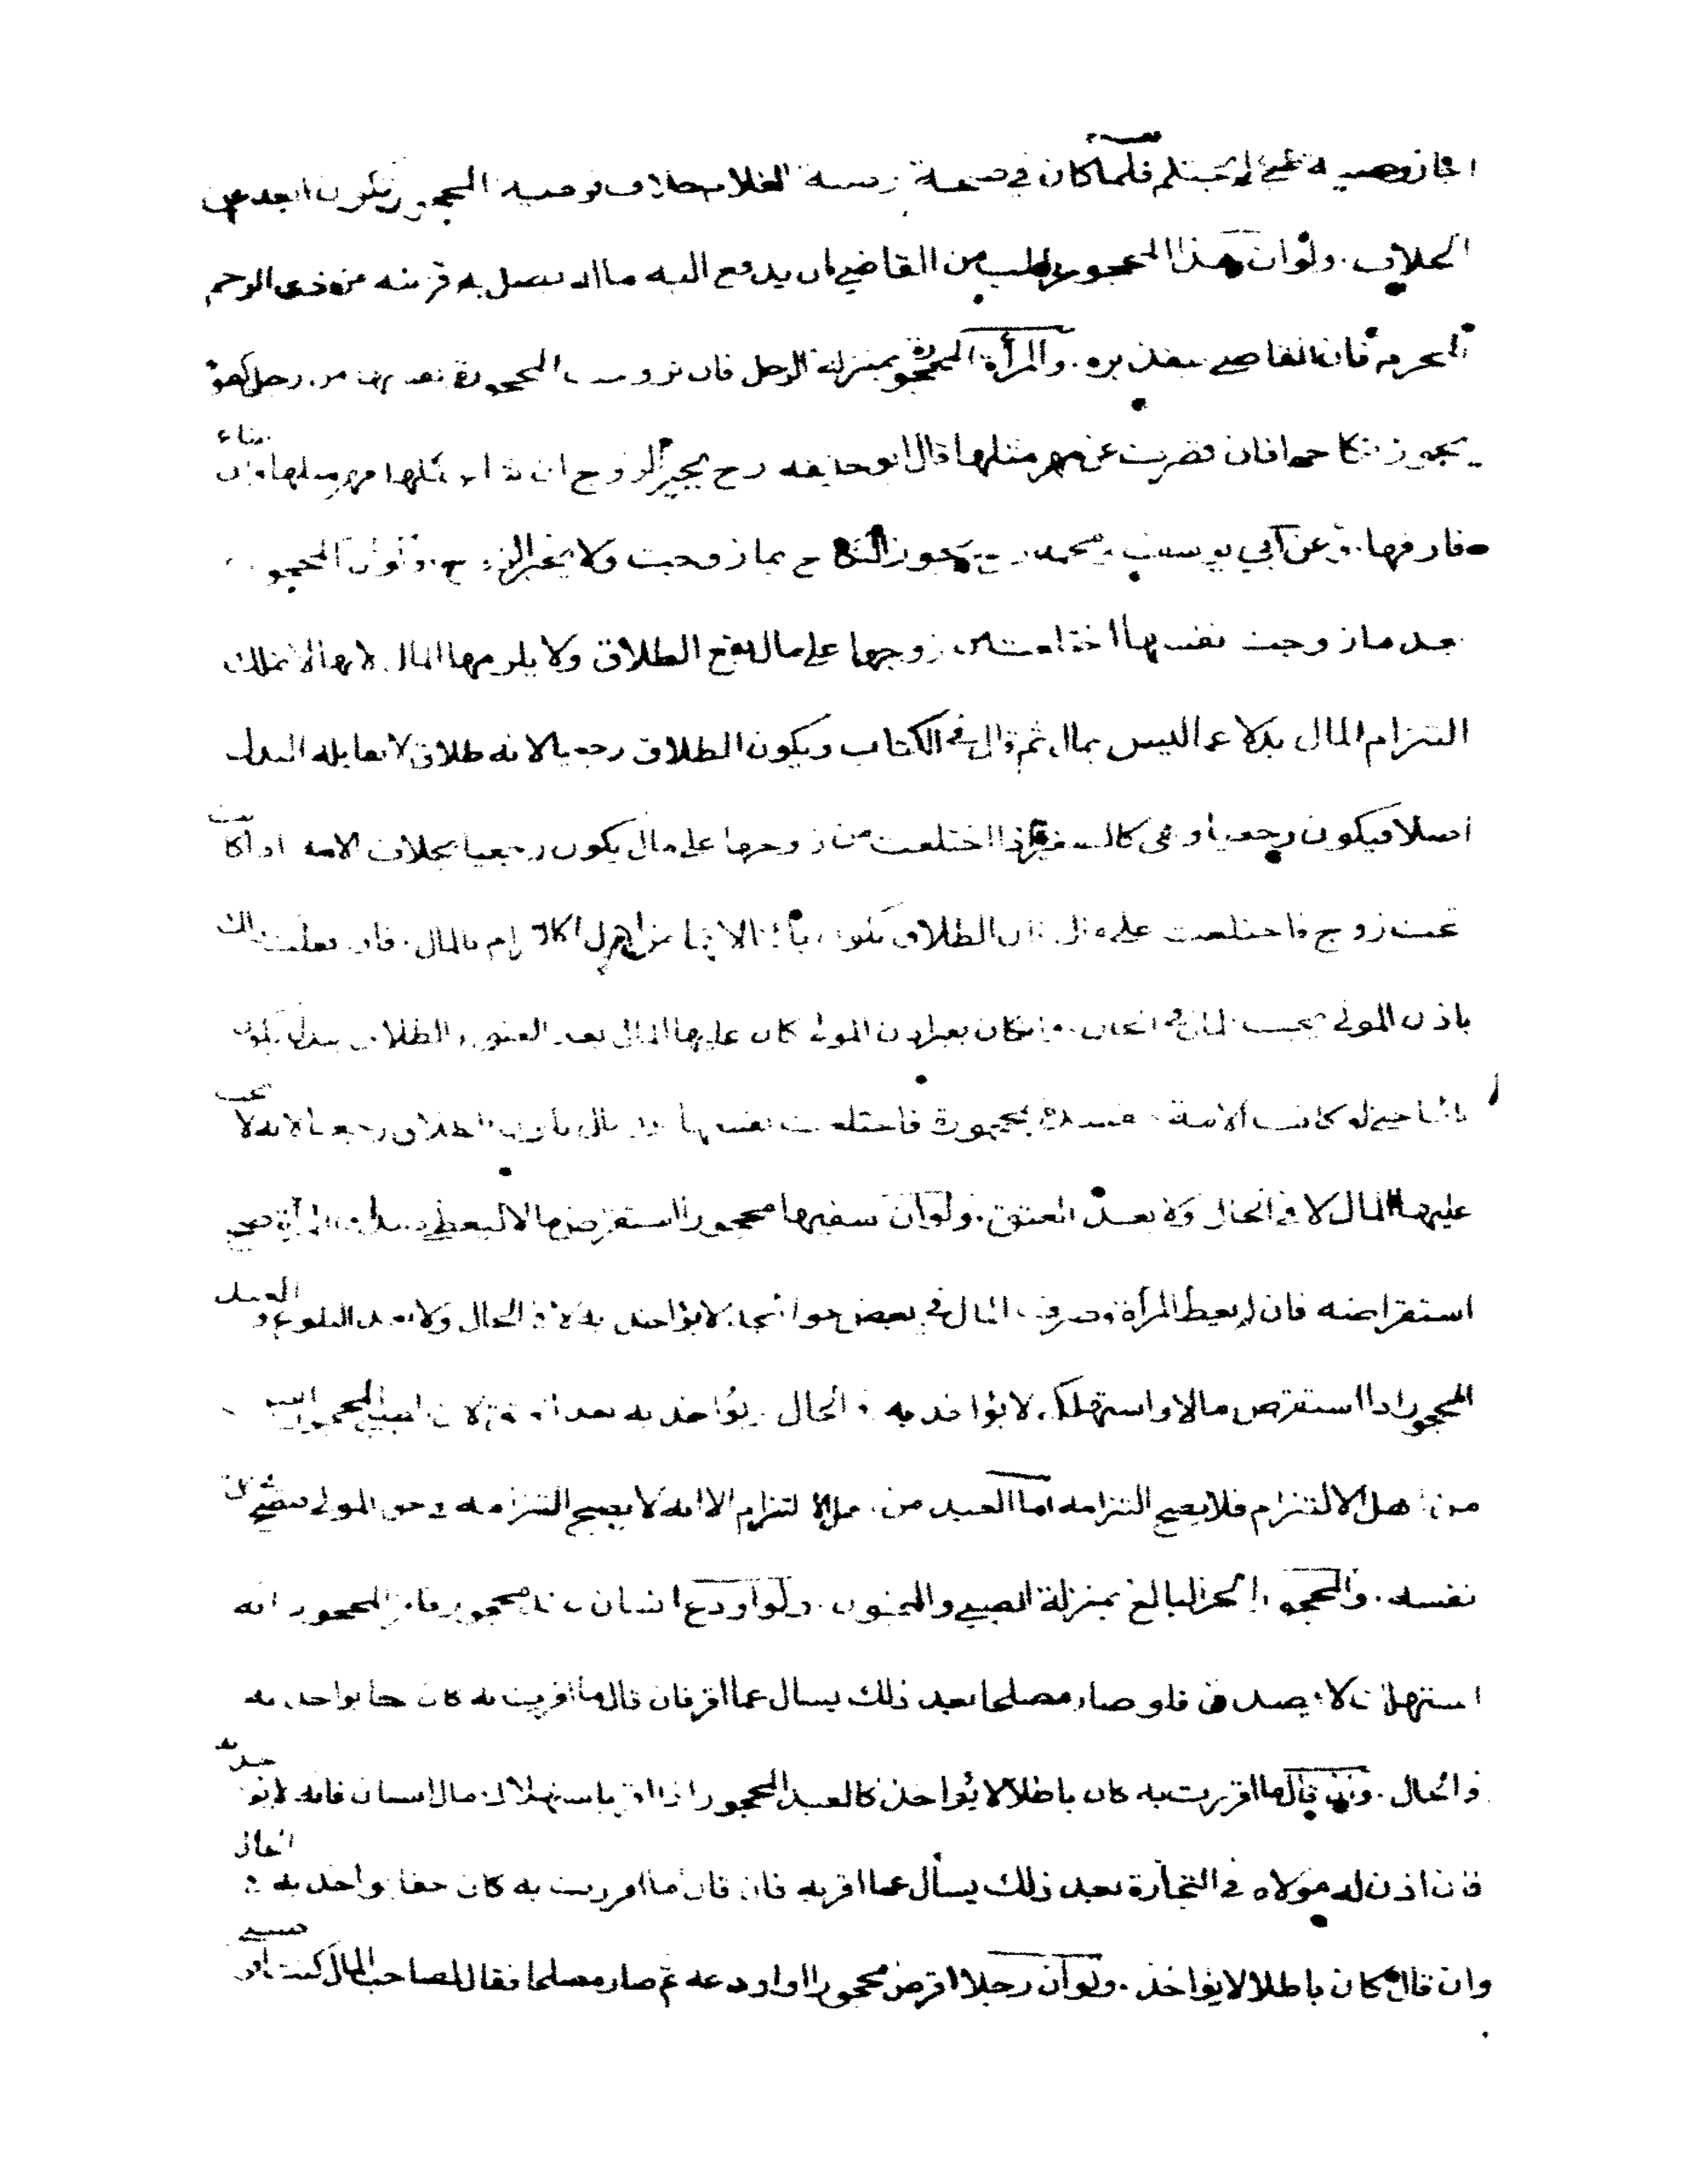 اجاز وصية غلام لم يحتلم فلما كان في صحة وصية الغلام خلاف فوصية المحجور تكون ابعد عن
الخلاف . ولو ان هذا المحجور طلب من القاضي ان يدفع اليه مالا يصل به قرابته من ذي الرحم
المحرم فان القاضي ينفذ بره . والمرأة المحجورة بمنزلة الرجل فان تزوجت المحجورة نفسها من رجل كفؤ
يجوز نكاحها فان قصرت عن مهر مثلها قال ابو حنيفه رح يخير الزوج ان شاء كملها مهر مثلها وان شاء
فارقها . وعن ابي يوسف ومحمد رح يجوز النكاح بما زوجت ولا يخير الزوج . ولو ان المحجورة
بعد ما زوجت نفسها اختلعت من زوجها على مال يقع الطلاق ولا يلزمها المال لانها لا تملك
التزام المال بدلا عما ليس بمال ثم قال في الكتاب ويكون الطلاق رجعيا لانه طلاق لا يقابله البدل
اصلا فيكون رجعيا وهي كالصغيرة اذا اختلعت من زوجها على مال يكون رجعيا بخلاف الامة اذا كانت
تحت زوج فاختلعت على مال فان الطلاق يكون بائنا لانها من اهل الالتزام بالمال . فان فعلت ذلك
باذن المولى يجب المال في الحال . وان كان بغير اذن المولى كان عليها المال بعد العتق والطلاق ببدل يكون
بائنا حتى لو كانت الامة مفسدة محجورة فاختلعت نفسها على مال يكون الطلاق رجعيا لانه لا يجب
عليها المال لا في الحال ولا بعد العتق . ولو ان سفيها محجورا استقرض مالا ليعطي صداق المرأة صح
استقراضه فان لم يعط المرأة وصرف المال في بعض حوائجه لا يؤاخذ به لا في الحال ولا بعد البلوغ و العبد
المحجور اذا استقرض مالا واستهلكه لا يؤاخذ به في الحال ويؤاخذ به بعد العتق لان الصبي المحجور ليس
من اهل الالتزام فلا يصح التزامه اما العبد من اهل الالتزام الا انه لا يصح التزامه في حق المولى فيصح في حق
نفسه . والمحجور الحر البالغ بمنزلة الصبي والمجنون . ولو اودع انسان عند محجور فاقر المحجور انه
استهلك لا يصدق فلو صار مصلحا بعد ذلك يسأل عما اقر فان قال ما اقررت به كان حقا يؤاخذ به
في الحال . وان قال ما اقررت به كان باطلا لا يؤاخذ كالعبد المحجور اذا اقر باستهلاك مال انسان فانه لا يؤاخذ به
فان اذن له مولاه في التجارة بعد ذلك يسأل عما اقر به فان قال ما اقررت به كان حقا يؤاخذ به في الحال
وان قال كان باطلا لا يؤاخذ . ولو ان رجلا اقرض محجورا او اودعه ثم صار مصلحا فقال لصاحب المال كنت اقرضتني